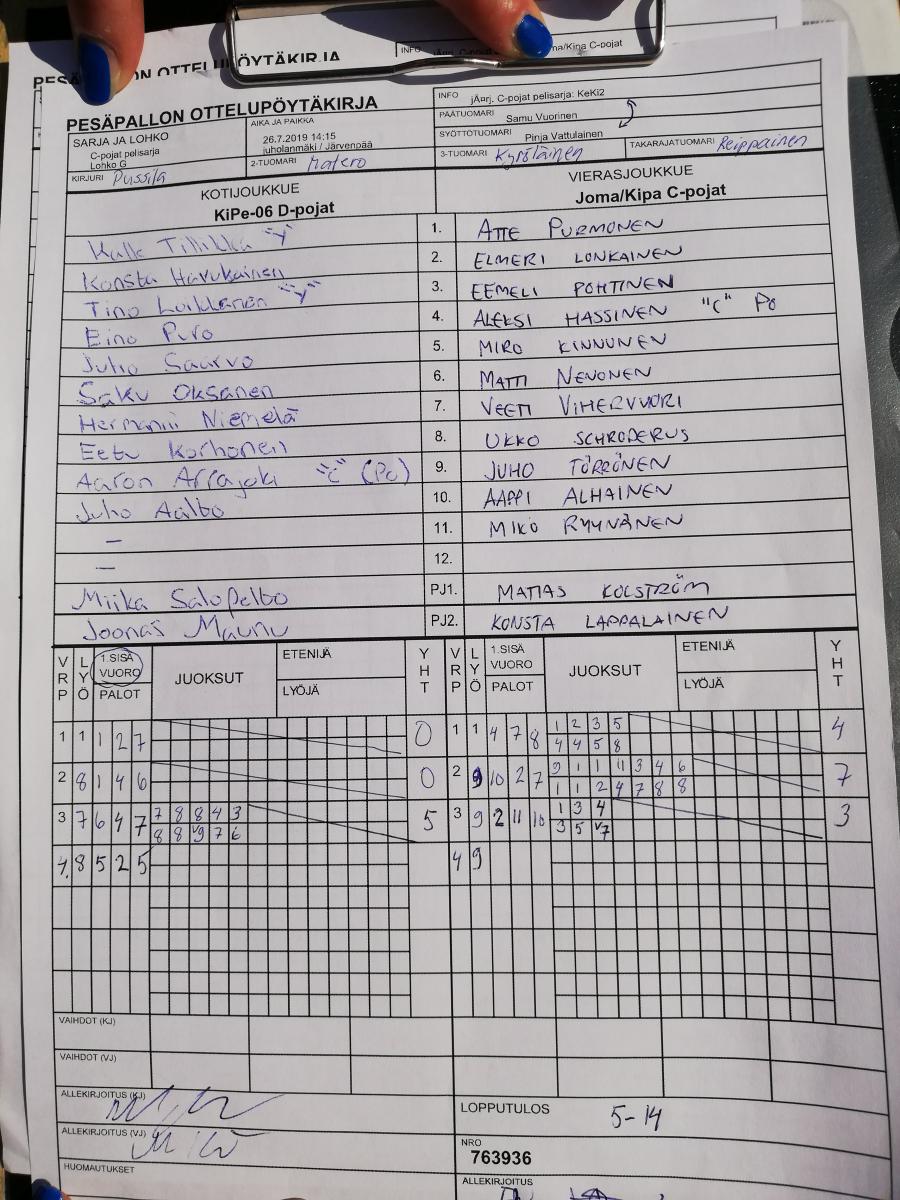 PESÄPALLON OTTELUPÖYTÄKIRJA
INFO jÄ¤rj. C-pojat pelisarja: KeKi2
PÄÄTUOMARI Samu Vuorinen
SYÖTTÖTUOMARI Pinja Vattulainen
SARJA JA LOHKO
C-pojat pelisarja
Lohko G
AIKA JA PAIKKA
26.7.2019 14:15
juholanmäki / Järvenpää
KIRJURI Pussila
2-TUOMARI Matero
3-TUOMARI Kyröläinen
TAKARAJATUOMARI Reippainen
KOTIJOUKKUE
KiPe-06 D-pojat
VIERASJOUKKUE
Joma/Kipa C-pojat
Kalle Tillikka "Y" 1. ATTE PURMONEN
Konsta Havukainen 2. ELMERI LONKAINEN
Tino Loikkanen "Y" 3. EEMELI POHTINEN
Eino Puro 4. ALEKSI HASSINEN "C" Po
Juho Saarvo 5. MIRO KINNUNEN
Saku Oksanen 6. MATTI NEVONEN
Hermanni Niemelä 7. VEETI VIHERVUORI
Eetu Korhonen 8. UKKO SCHRODERUS
Aaron Arrajoki "C" (Po) 9. JUHO TÖRRÖNEN
Juho Aalto 10. AAPPI ALHAINEN
– 11. MIKO RYYNÄNEN
– 12.
Miika Salopelto PJ1. MATIAS KOLSTRÖM
Joonas Maunu PJ2. KONSTA LAPPALAINEN
VRP LYÖ 1.SISÄ VUORO PALOT JUOKSUT ETENIJÄ LYÖJÄ YHT VRP LYÖ 1.SISÄ VUORO PALOT JUOKSUT ETENIJÄ LYÖJÄ YHT
1 1 1 2 7 0 1 1 4 7 8 1 2 3 5 4
4 4 5 8
2 8 1 4 6 0 2 9 10 2 7 9 1 1 11 3 4 6 7
1 1 2 4 7 8 8
3 7 6 4 7 7 8 8 4 3 5 3 9 2 11 10 1 3 4 3
8 8 v9 7 6 3 5 v7
4. 8 5 2 5 4 9
VAIHDOT (KJ)
VAIHDOT (VJ)
ALLEKIRJOITUS (KJ)
ALLEKIRJOITUS (VJ)
HUOMAUTUKSET
LOPPUTULOS 5-14
NRO
763936
ALLEKIRJOITUS